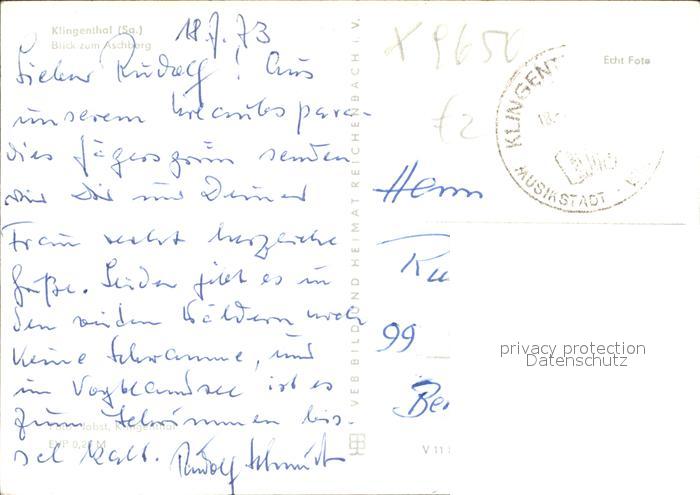 Klingenthal (Sa.)
Blick zum Aschberg
18.7.73
Lieber Rudolf! Aus
unserem Urlaubspara-
dies Jägersgrün senden
wir Dir und Deiner
Frau recht herzliche
Grüße. Leider gibt es in
den Wäldern noch
keine Schwämme, und
im Vogtlandsee ist es
zum Schwimmen bis-
sel kalt. Rudolf Schmidt
Klingenthal
EVP 0,2 M
VEB BILD UND HEIMAT REICHENBACH I. V.
V 11
X 9650
f2
Echt Foto
KLINGENT
18.
MUSIKSTADT
Herrn
Ru
99
Be
privacy protection
Datenschutz